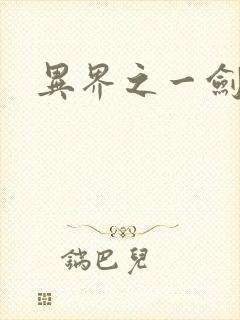 異界之一劍
鍋巴兒